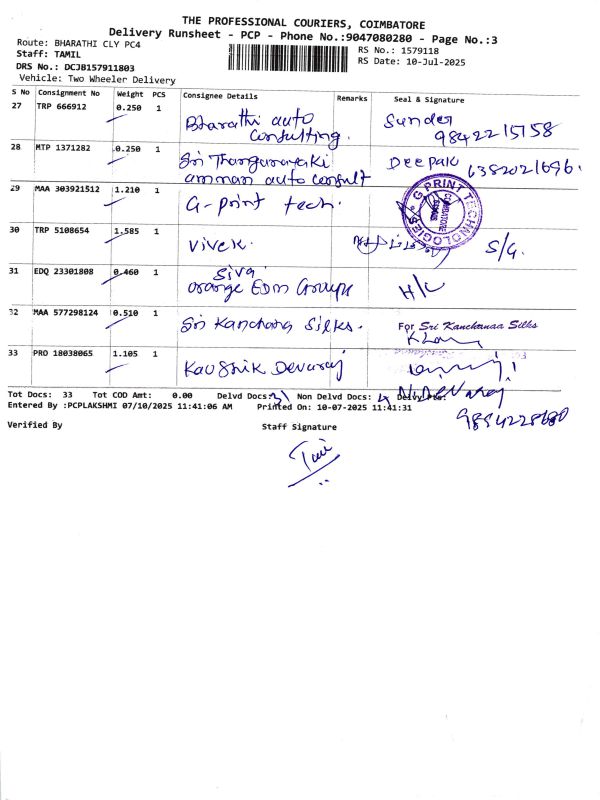 THE PROFESSIONAL COURIERS, COIMBATORE
Delivery Runsheet - PCP - Phone No.:9047080280 - Page No.:3
Route: BHARATHI CLY PC4
Staff: TAMIL
DRS No.: DCJB157911803
Vehicle: Two Wheeler Delivery
RS No.: 1579118
RS Date: 10-Jul-2025
S No Consignment No Weight PCS Consignee Details Remarks Seal & Signature
27 TRP 666912 0.250 1 Bharathi auto consulting. Sunder 9842215158
28 MTP 1371282 0.250 1 Sri Thangunayaki amman auto consult Deepak 6382021696.
29 MAA 303921512 1.210 1 G-print tech. G PRINT TECHNOLOGIES COIMBATORE
30 TRP 5108654 1.585 1 Vivek. S/G.
31 EDQ 23301808 0.460 1 Siva orange EDM Groups H/C
32 MAA 577298124 0.510 1 Sri Kanchana Silks. For Sri Kanchanaa Silks
33 PRO 18038065 1.105 1 Kaushik Devaraj N.Devaraj
Tot Docs: 33 Tot COD Amt: 0.00 Delvd Docs: 31 Non Delvd Docs: Delvy Pts:
Entered By :PCPLAKSHMI 07/10/2025 11:41:06 AM Printed On: 10-07-2025 11:41:31
9894228680
Verified By Staff Signature